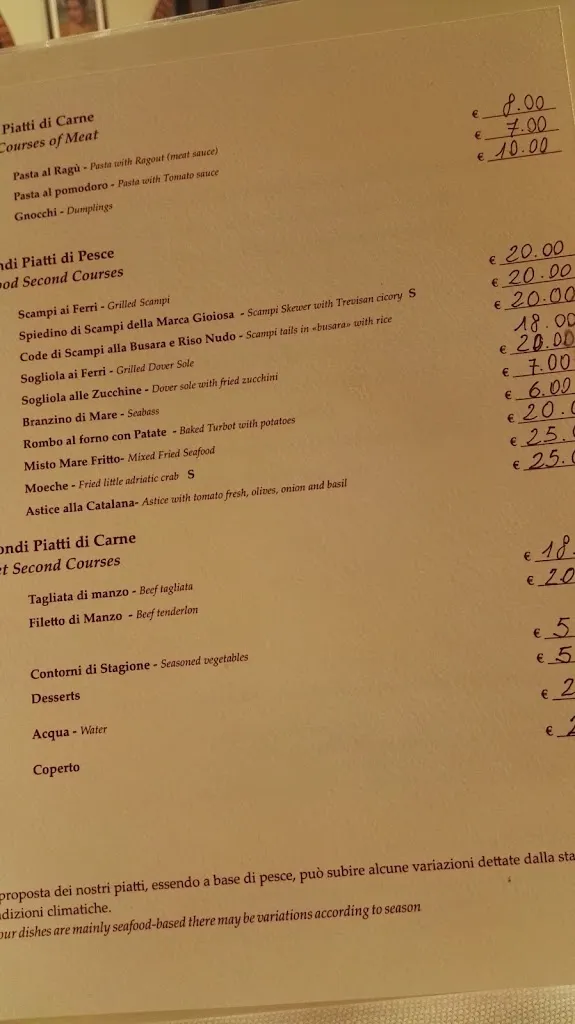 Piatti di Carne
Courses of Meat
Pasta al Ragù - Pasta with Ragout (meat sauce) € 8.00
Pasta al pomodoro - Pasta with Tomato sauce € 7.00
Gnocchi - Dumplings € 10.00
ndi Piatti di Pesce
ood Second Courses
Scampi ai Ferri - Grilled Scampi € 20.00
Spiedino di Scampi della Marca Gioiosa - Scampi Skewer with Trevisan cicory S € 20.00
Code di Scampi alla Busara e Riso Nudo - Scampi tails in «busara» with rice € 20.00
Sogliola ai Ferri - Grilled Dover Sole 18.00
Sogliola alle Zucchine - Dover sole with fried zucchini € 20.00
Branzino di Mare - Seabass € 7.00
Rombo al forno con Patate - Baked Turbot with potatoes € 6.00
Misto Mare Fritto- Mixed Fried Seafood € 20.
Moeche - Fried little adriatic crab S € 25.
Astice alla Catalana- Astice with tomato fresh, olives, onion and basil € 25.
ondi Piatti di Carne
et Second Courses
Tagliata di manzo - Beef tagliata € 18.
Filetto di Manzo - Beef tenderlon € 20
Contorni di Stagione - Seasoned vegetables € 5
Desserts € 5
Acqua - Water € 2
Coperto €
proposta dei nostri piatti, essendo a base di pesce, può subire alcune variazioni dettate dalla sta
dizioni climatiche.
our dishes are mainly seafood-based there may be variations according to season